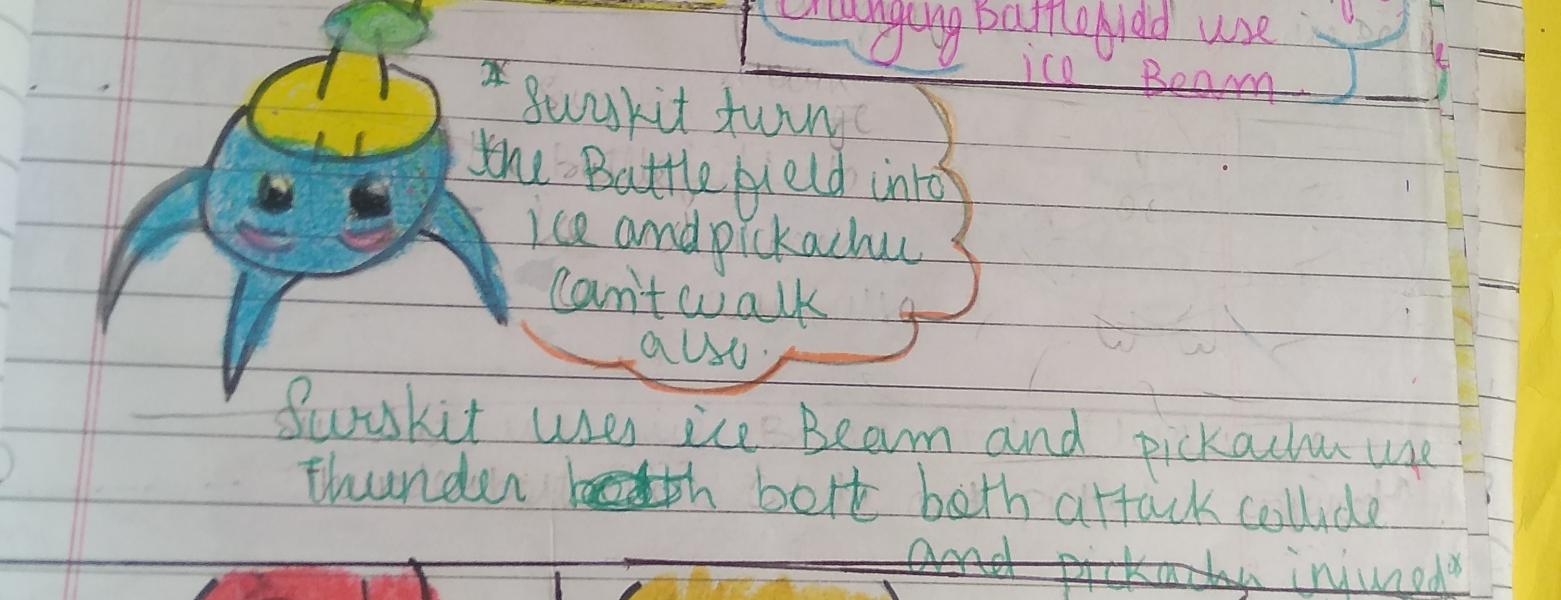 Changing Battlefidd use
ice Beam.
* Surskit turn
the Battle field into
ice and pickachu
Can't walk
also.
Surskit uses ice Beam and pickachu use
thunder bolt both attack collide
and pickachu injured*